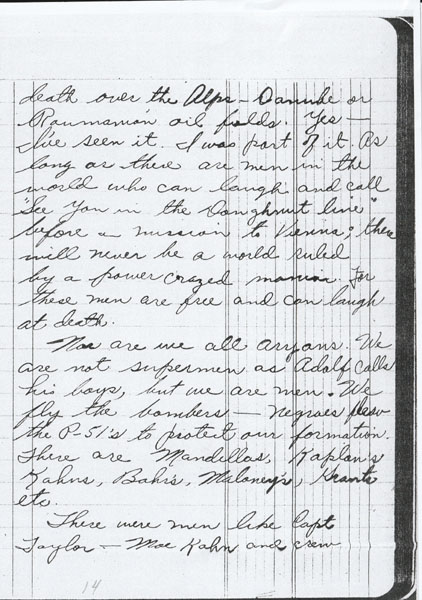 death over the Alps – Danube or
Roumanian oil fields. Yes –
I've seen it. I was part of it. As
long as there are men in the
world who can laugh and call
"See You in the Doughnut line"
before a mission to Vienna; there
will never be a world ruled
by a power crazed maniac for
these men are free and can laugh
at death.
Nor are we all aryans. We
are not supermen as Adolf calls
his boys, but we are men. We
fly the bombers – Negroes flew
the P-51's to protect our formation.
There are Mandellas, Kaplan's
Kahns, Bahrs, Maloney's, Grants
etc.
There were men like Capt
Taylor – Moe Kahn and crew
14